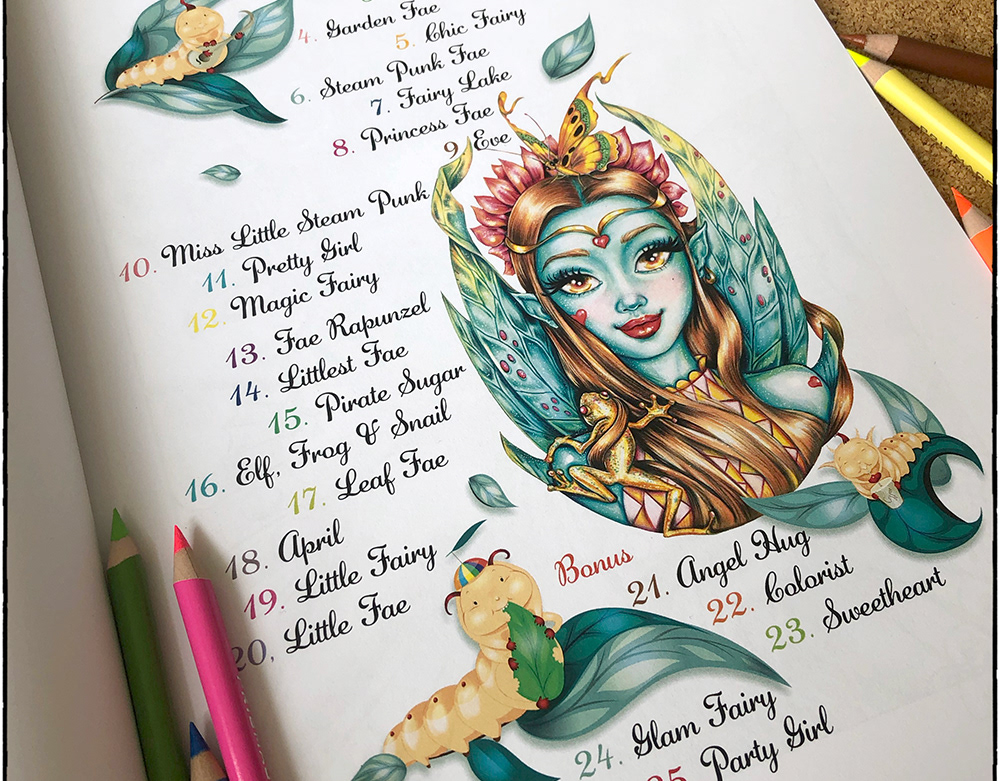 4. Garden Fae
5. Chic Fairy
6. Steam Punk Fae
7. Fairy Lake
8. Princess Fae
9 Eve
10. Miss Little Steam Punk
11. Pretty Girl
12. Magic Fairy
13. Fae Rapunzel
14. Littlest Fae
15. Pirate Sugar
16. Elf, Frog & Snail
17. Leaf Fae
18. April
19. Little Fairy
20, Little Fae
Bonus
21. Angel Hug
22. Colorist
23. Sweetheart
24. Glam Fairy
25. Party Girl